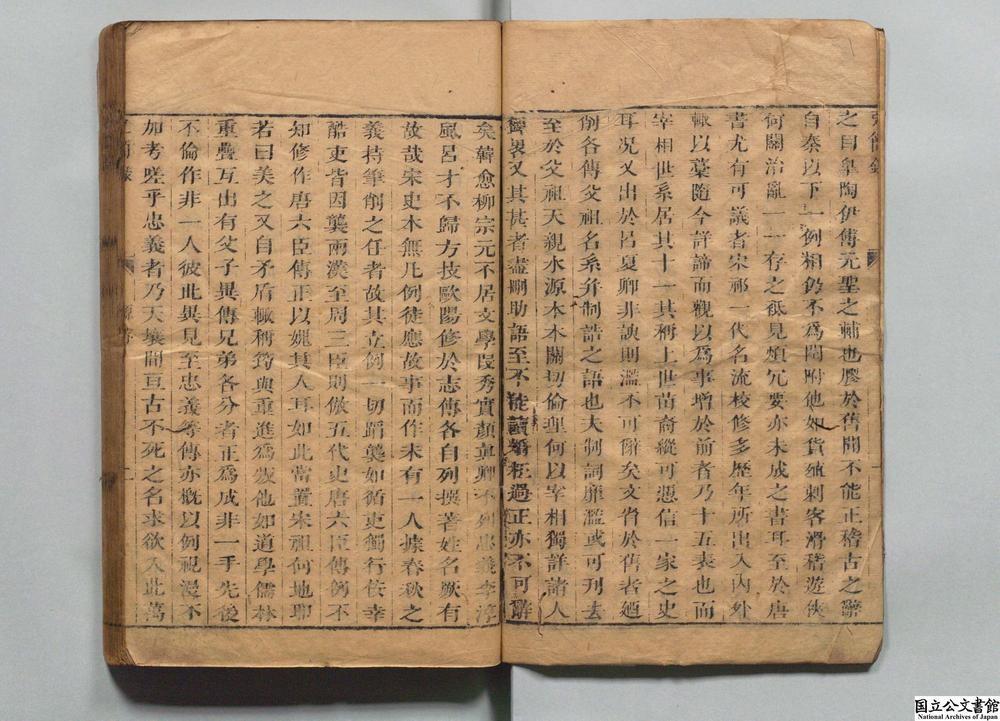 之曰皐陶伊傅元聖之輔也膠於舊聞不能正稽古之辭
自秦以下一例相仍不爲閏附他如貨殖刺客滑稽遊俠
何關治亂一一存之祗見煩冗要亦未成之書耳至於唐
書尤有可議者宋祁一代名流校修多歷年所出入內外
輒以藁隨今詳諦而觀以爲事增於前者乃十五表也而
宰相世系居其十一其稱上世苗裔縱可憑信一家之史
耳況又出於呂夏卿非諛則濫不可辭矣文省於舊者迺
削各傳父祖名系并制誥之語也夫制詞靡濫或可刊去
至於父祖天親水源木本關切倫理何以宰相獨詳諸人
畧又其甚者盡刪助語至不能讀矯枉過正亦不可辭
矣韓愈柳宗元不居文學叚秀實顏眞卿不列忠義李淳
風呂才不歸方技歐陽修於志傳各自列撰著姓名厥有
故哉宋史本無凡例徒應故事而作未有一人據春秋之
義持筆削之任者故其立例一切蹈襲如循吏獨行佞幸
酷吏皆因襲兩漢至周三臣則倣五代史唐六臣傳例不
知修作唐六臣傳正以媿其人耳如此當置宋祖何地耶
若曰美之又自矛盾輒稱筠與重進爲叛他如道學儒林
重疊互出有父子異傳兄弟各分者正爲成非一手先後
不倫作非一人彼此異見至忠義等傳亦槪以例視漫不
加考嗟乎忠義者乃天壤間亘古不死之名求欲入此萬
国立公文書館
National Archives of Japan